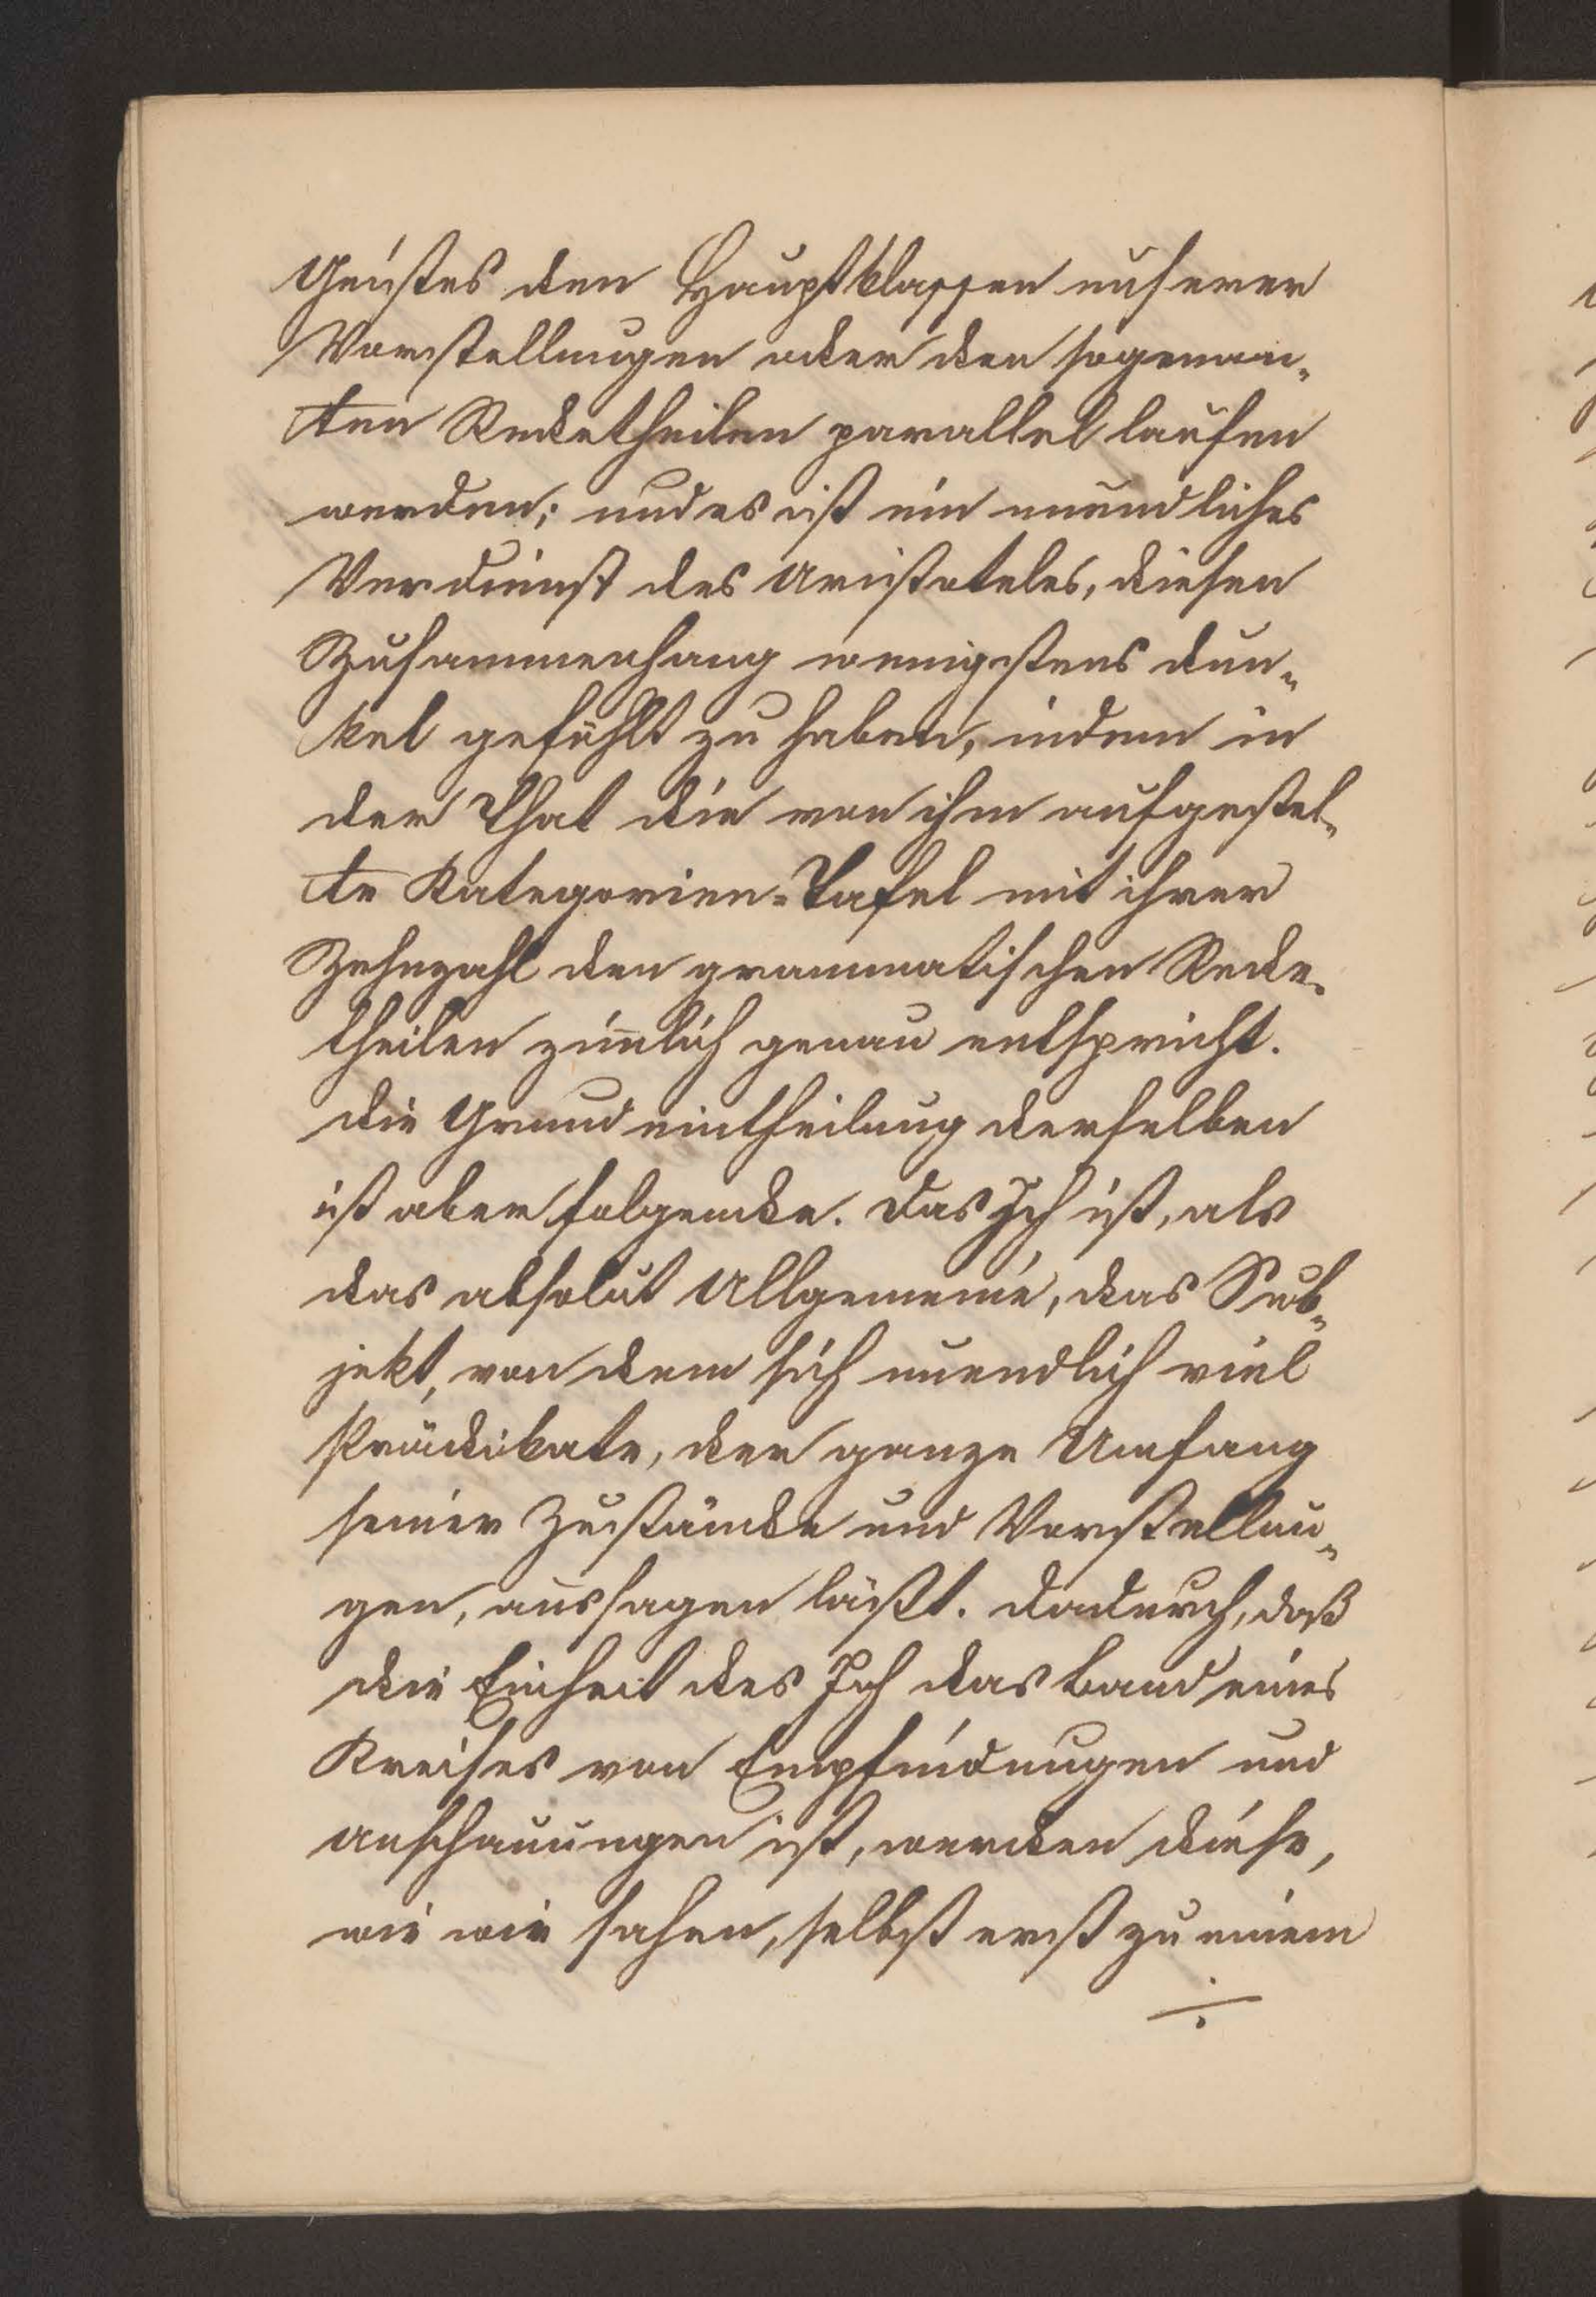 Geistes den Hauptklassen unserer
Vorstellungen oder den sogenan-
ten Redetheilen parallel laufen
werden; und es ist ein unendliches
Verdienst des Aristoteles, diesen
Zusammenhang wenigstens dun-
kel gefühlt zu haben, indem in
der That die von ihm aufgestel-
te Kategorien-Tafel mit ihrer
Zehnzahl den grammatischen Rede-
theilen zimlich genau entspricht.
Die Grundeintheilung derselben
ist aber folgende. Das Ich ist, als
das absolut Allgemeine, das Sub-
jekt, von dem sich unendlich viel
Prädikate, der ganze Umfang
seiner Zustände und Vorstellun-
gen, aussagen läßt. Dadurch, daß
die Einheit des Ich das Band eines
Kreises von Empfindungen und
Anschauungen ist, werden diese,
wie wir sahen, selbst erst zu einem
÷